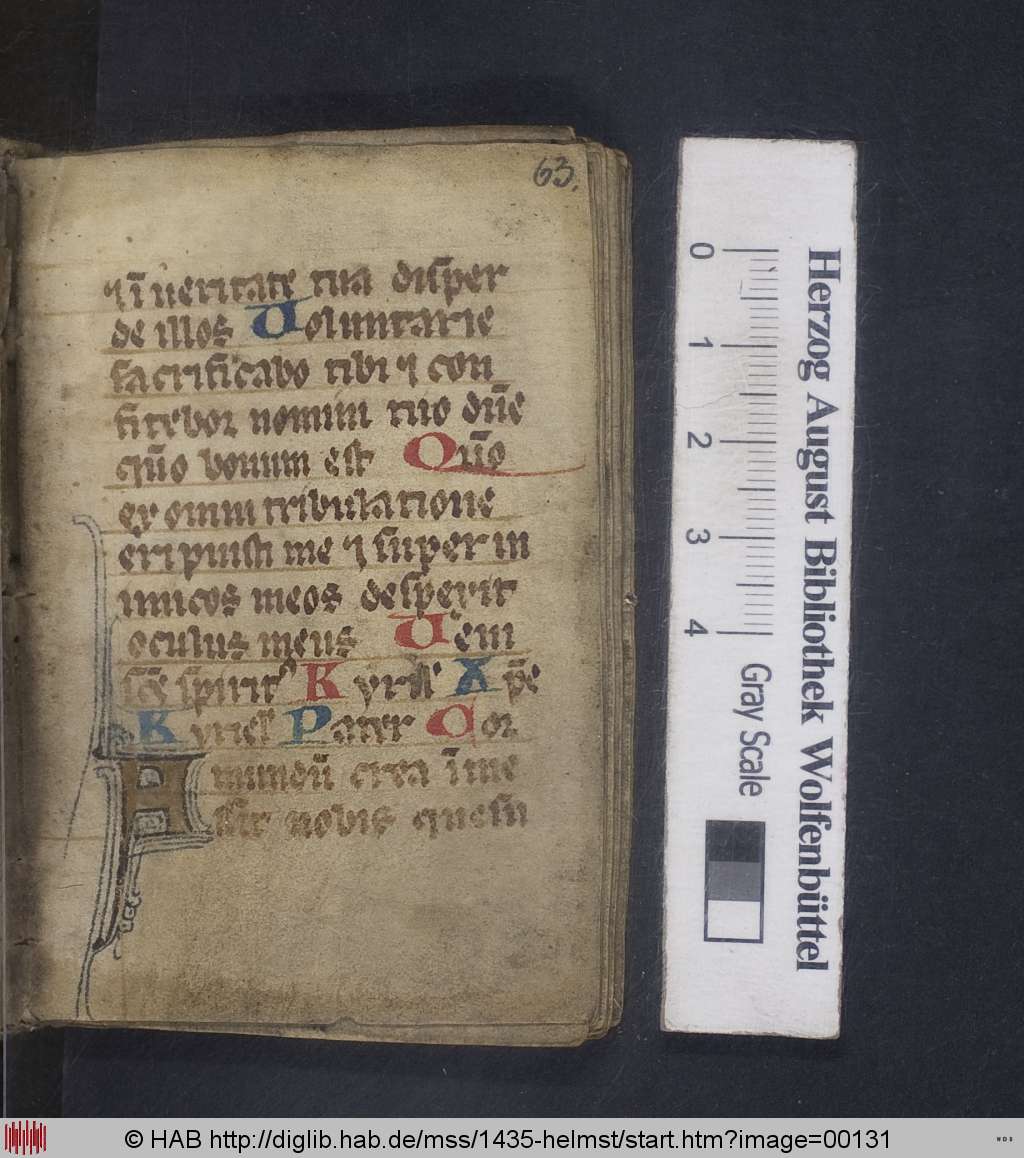 63.
⁊ ī ueritate tua disper
de illos Uoluntarie
sacrificabo tibi ⁊ con
fitebor nomini tuo dn̄e
qm̄o bonum est Qm̄o
ex omni tribulatione
eripuisti me ⁊ super in
imicos meos desperit
oculus meus Ueni
sc̄e spirit⁹ Kyriel Ap̄e
Kyriel Pater Cor
mundū crea ī me
Assit nobis quesu
Herzog August Bibliothek Wolfenbüttel
0 1 2 3 4 Gray Scale
© HAB http://diglib.hab.de/mss/1435-helmst/start.htm?image=00131